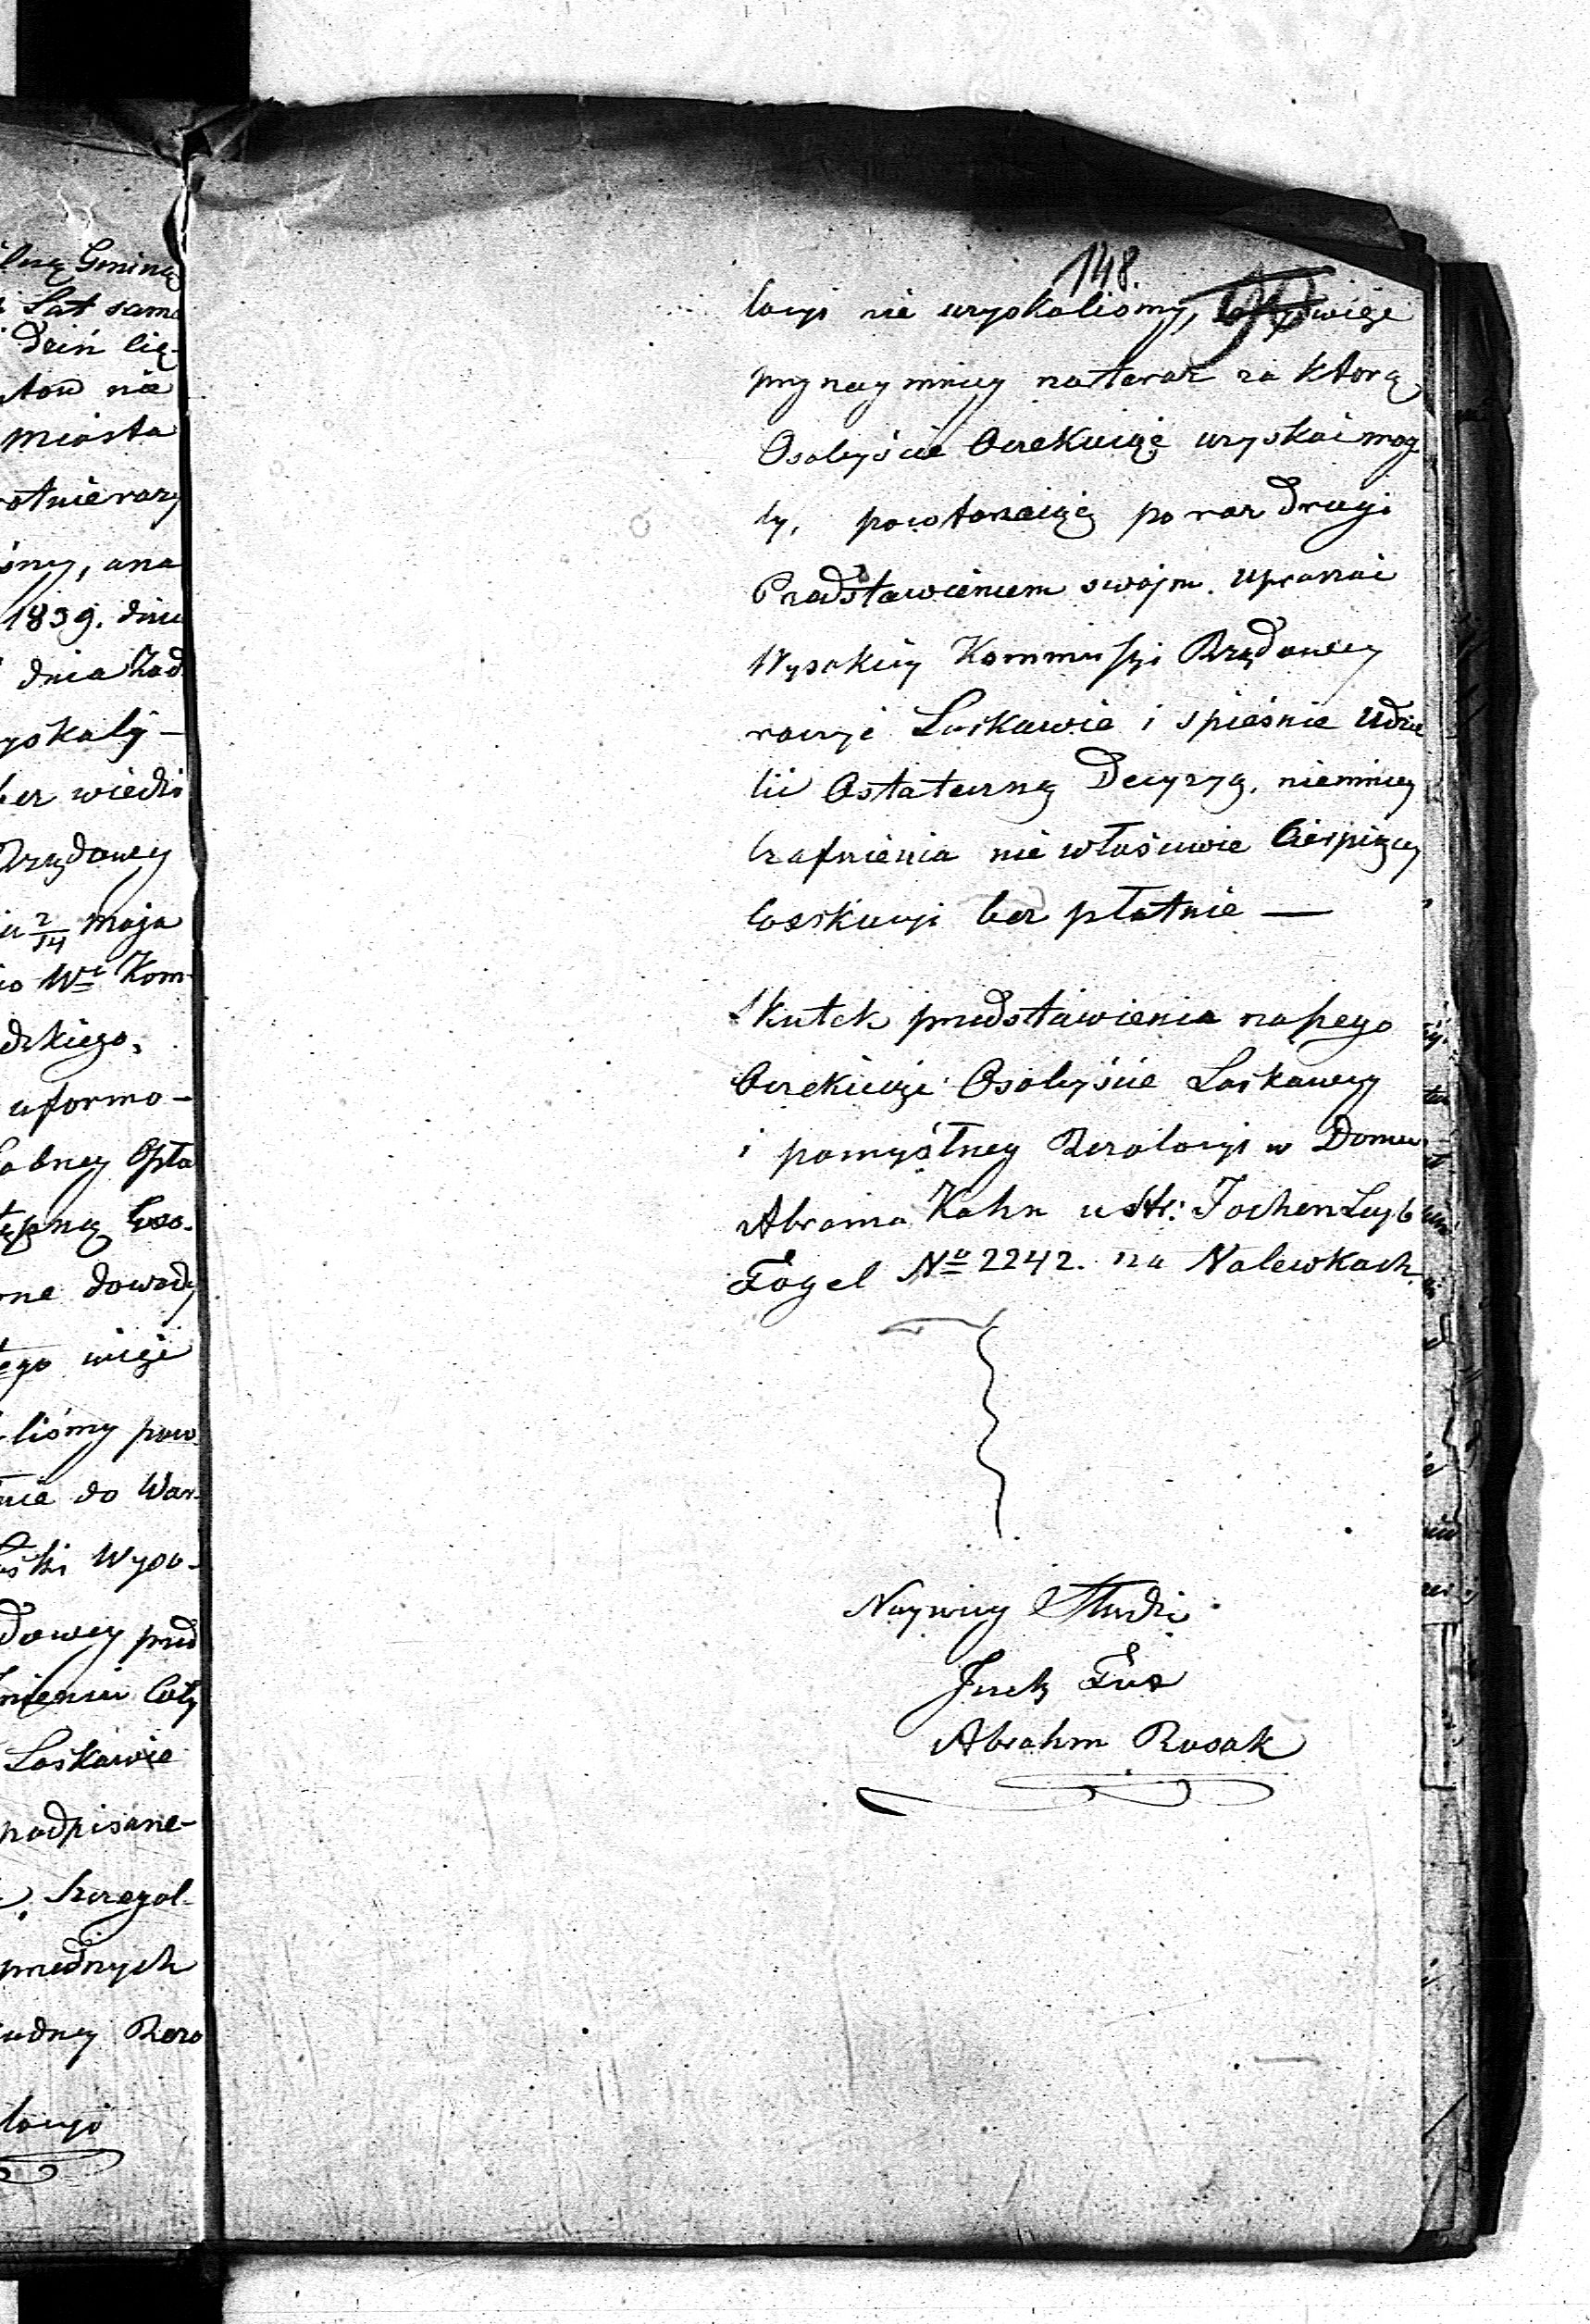 ilną Gminą
i Lat samo
dzień lię-
tów nie
miasta
rotnie razy
śmy, ana
1839. dniu
dnia Żad
yskały -
ber wiedzi
Rządowey
u 2/14 Maja
io We Kom-
dzkiego,
uformo-
łabney Opła
tępną
one dowody
tego więc
-liśmy pow
nie do War-
aski Wyso-
dowey prze
nieniu Coły
Łaskawie
podpisane-
Szczegól-
przednych
żadney Rezo
lucyi
148.
lucyi nie uzyskaliśmy, więc
przynaymniey na teraz za którą
Osobyście Oczekuiąc uzyskać mog
ły, powtarzaiąc po raz drugi
Przedstawieniem swojm. upraszać
Wysokiey Kommissyi Rządowey
raczyć Łaskawie i spieśnie Udzie
lić Ostateczną Decyzyą, niemniey
trafnienia nie właściwie Cierpiący
losskucyi bez płatnie —
Skutek przedstawienia naszego
Oczekiuąc Osobyście Łaskawey
i pomyślney Rezolucyi w Domu
Abrama Kahn u Str: Jochen Leyb
Fogel No 2242. na Nalewkach
Naywięcy Słudzi
Juck Fus
Abrahm Rusak